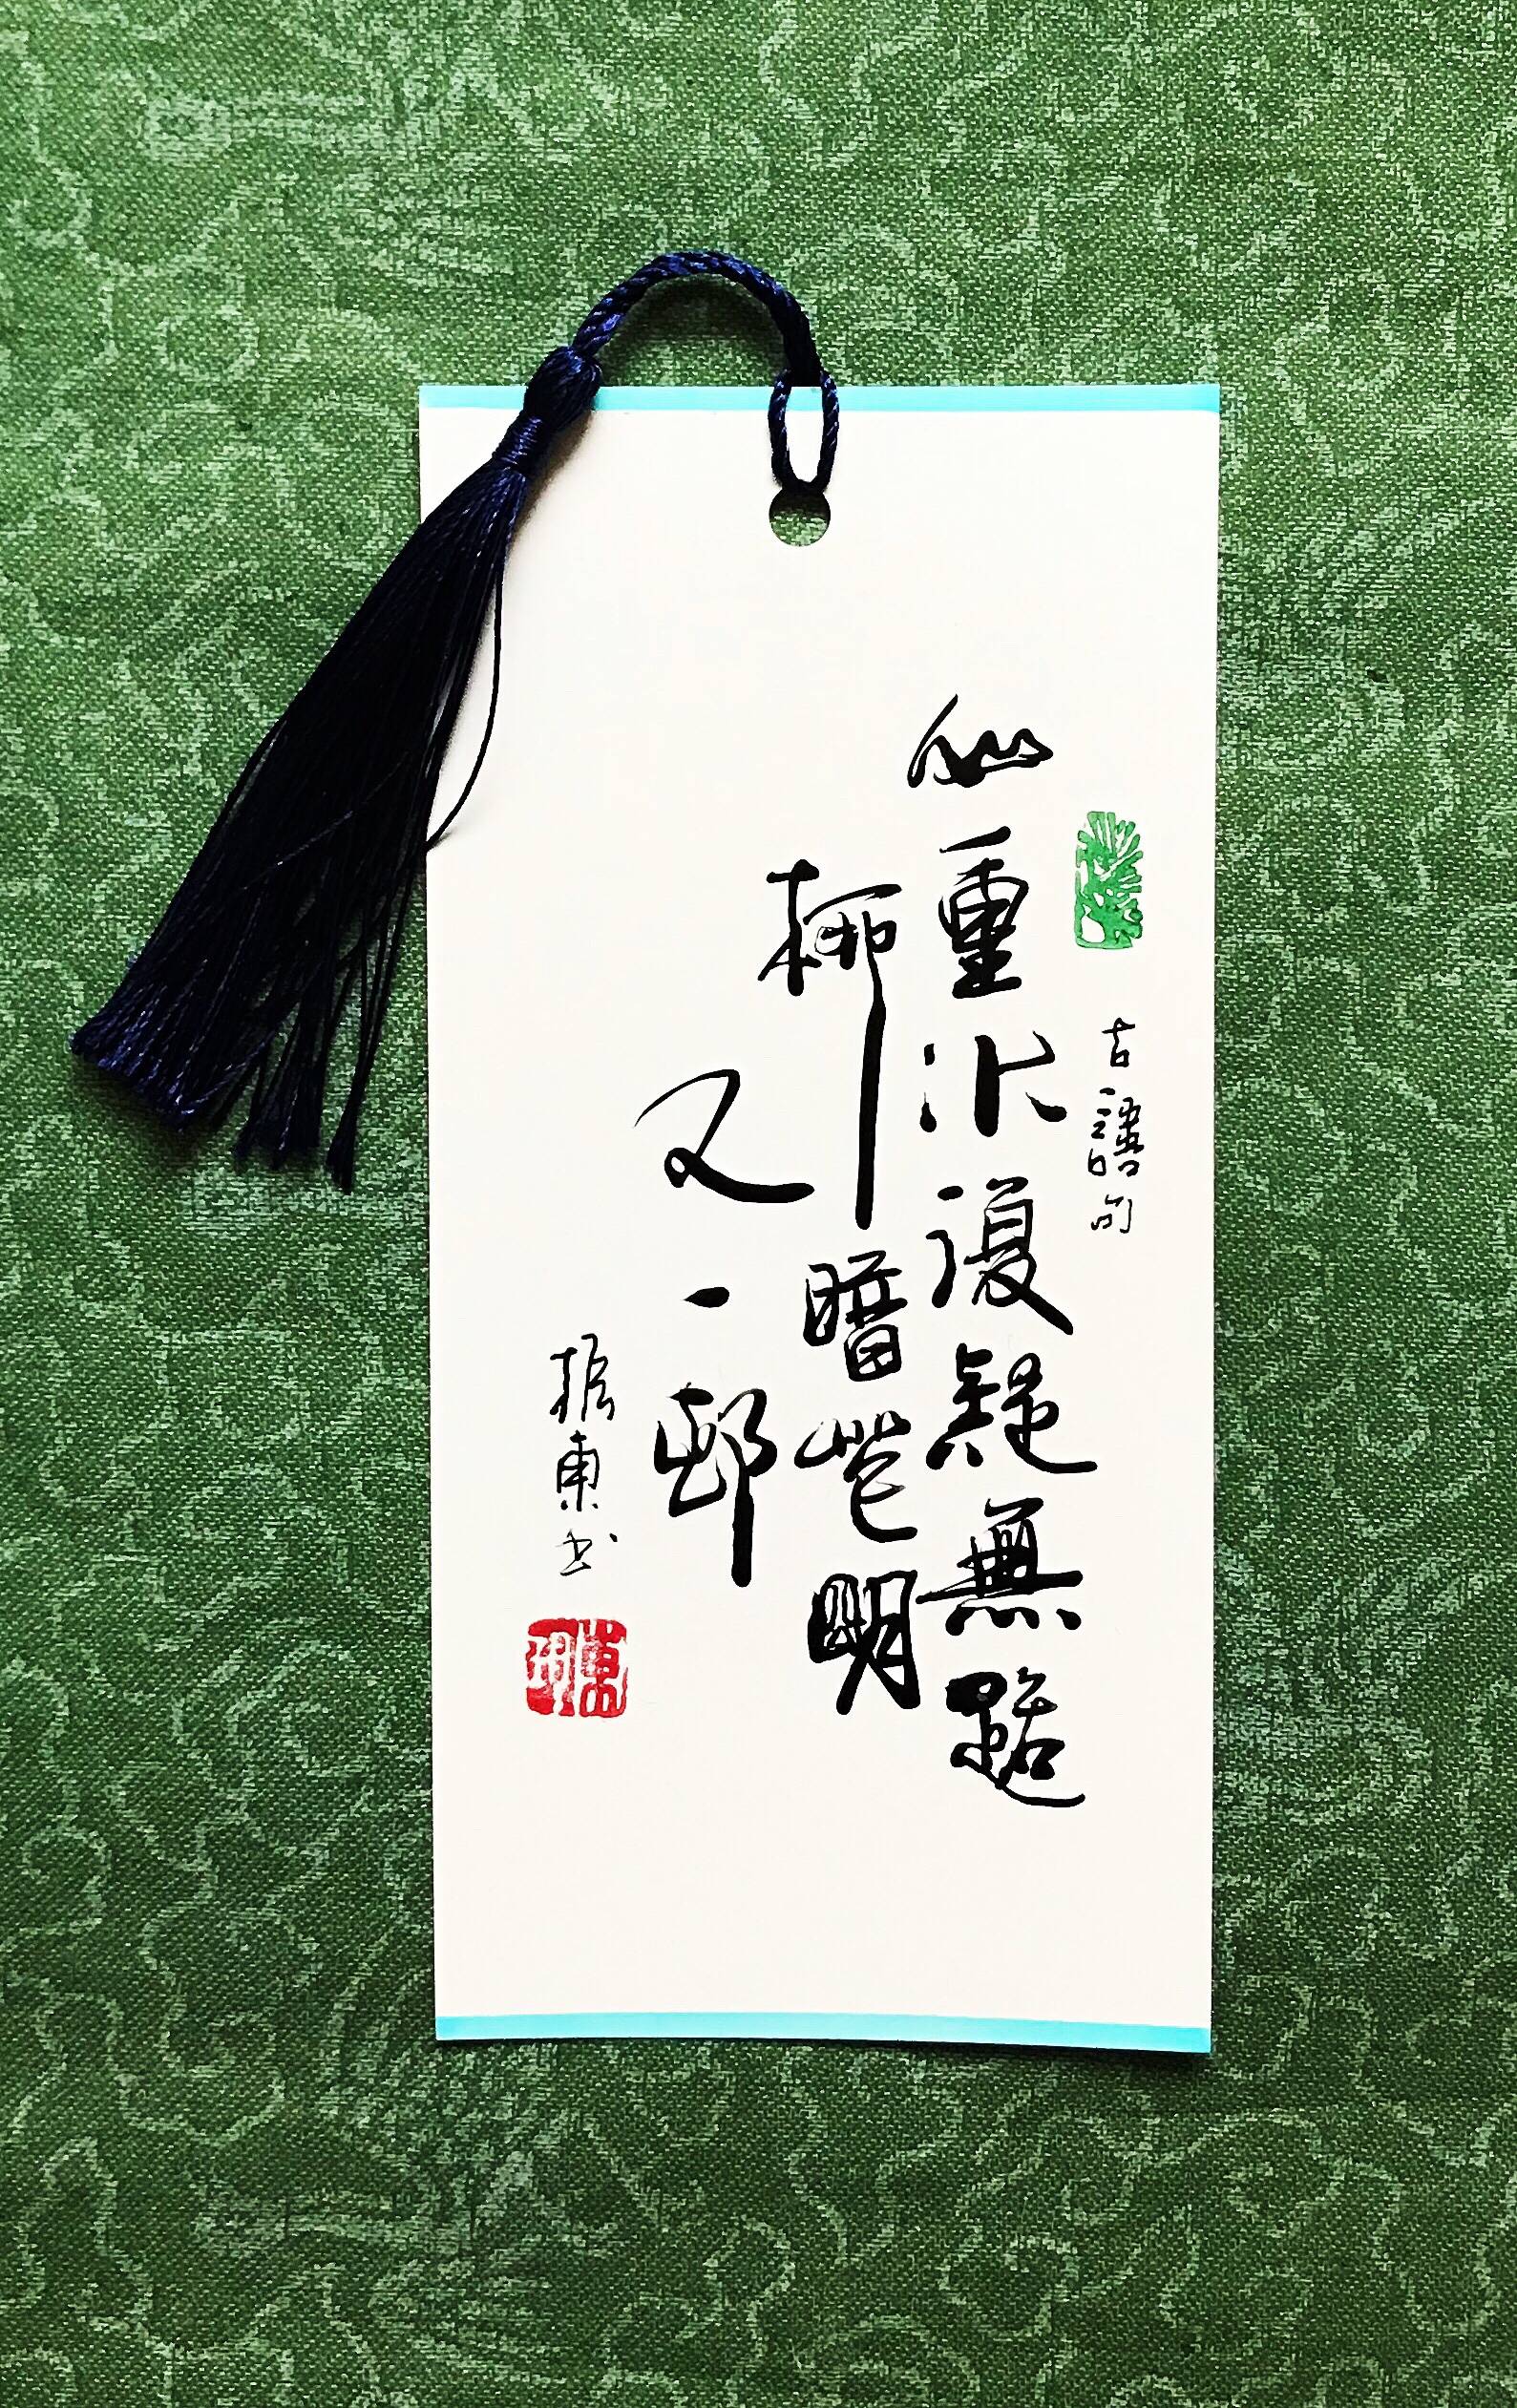 古語句
山重水復疑無路
柳暗花明
又一邨
振東书